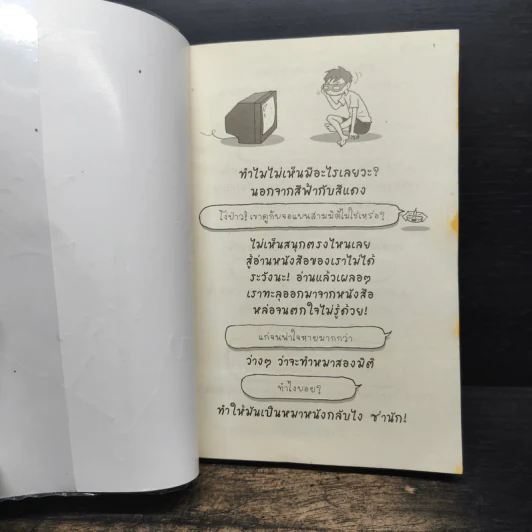 1
ทำไมไม่เห็นมีอะไรเลยวะ?
นอกจากสีฟ้ากับสีแดง
โง่ป่าว! เขาดูกับจอแบนสามมิติไม่ใช่เหรอ?
ไม่เห็นสนุกตรงไหนเลย
สู้อ่านหนังสือของเราไม่ได้
ระวังนะ! อ่านแล้วเผลอๆ
เราทะลุออกมาจากหนังสือ
หล่อจนตกใจไม่รู้ด้วย!
แก่จนน่าใจหายมากกว่า
ว่างๆ ว่าจะทำหมาสองมิติ
ทำไงพอย?
ทำให้มันเป็นหมาหนังกลับไง ซ่านัก!